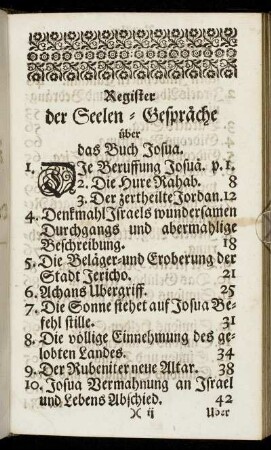 Register
der Seelen-Gespräche
über
das Buch Josua.
1. DIe Beruffung Josuä. p. 1.
2. Die Hure Rahab. 8
3. Der zertheilte Jordan. 12
4. Denkmahl Israels wundersamen
Durchgangs und abermahlige
Beschreibung. 18
5. Die Beläger- und Eroberung der
Stadt Jericho. 21
6. Achans Ubergriff. 25
7. Die Sonne stehet auf Josua Be-
fehl stille. 31
8. Die völlige Einnehmung des ge-
lobten Landes. 34
9. Der Rubeniter neue Altar. 38
10. Josua Vermahnung an Israel
und Lebens Abschied. 42
X ij Uber